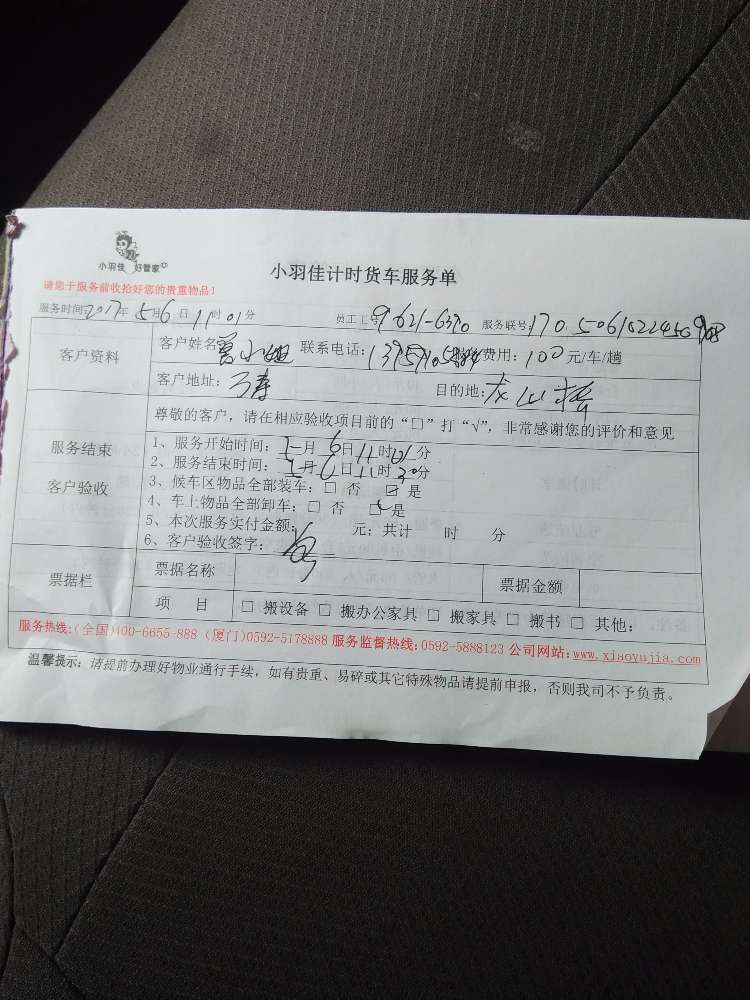 小羽佳 好管家
小羽佳计时货车服务单
请您于服务前收拾好您的贵重物品!
服务时间:2017年5月6日11时01分 员工工号: 9621-6370 服务联号:170506102245
客户资料
客户姓名: 小姐 联系电话: 费用:100元/车/趟
客户地址:万寿 目的地:龙山
服务结束
客户验收
尊敬的客户,请在相应验收项目前的“□”打“√”,非常感谢您的评价和意见
1、服务开始时间: 月6日11时01分
2、服务结束时间: 月6日11时30分
3、候车区物品全部装车:□ 否 ☑ 是
4、车上物品全部卸车:□ 否 ☑ 是
5、本次服务实付金额: 元;共计 时 分
6、客户验收签字:
票据栏
票据名称 票据金额
项 目 □ 搬设备 □ 搬办公家具 □ 搬家具 □ 搬书 □ 其他:
服务热线:(全国)400-6655-888 (厦门)0592-5178888 服务监督热线:0592-5888123 公司网站:www.xiaoyujia.com
温馨提示:请提前办理好物业通行手续,如有贵重、易碎或其它特殊物品请提前申报,否则我司不予负责。